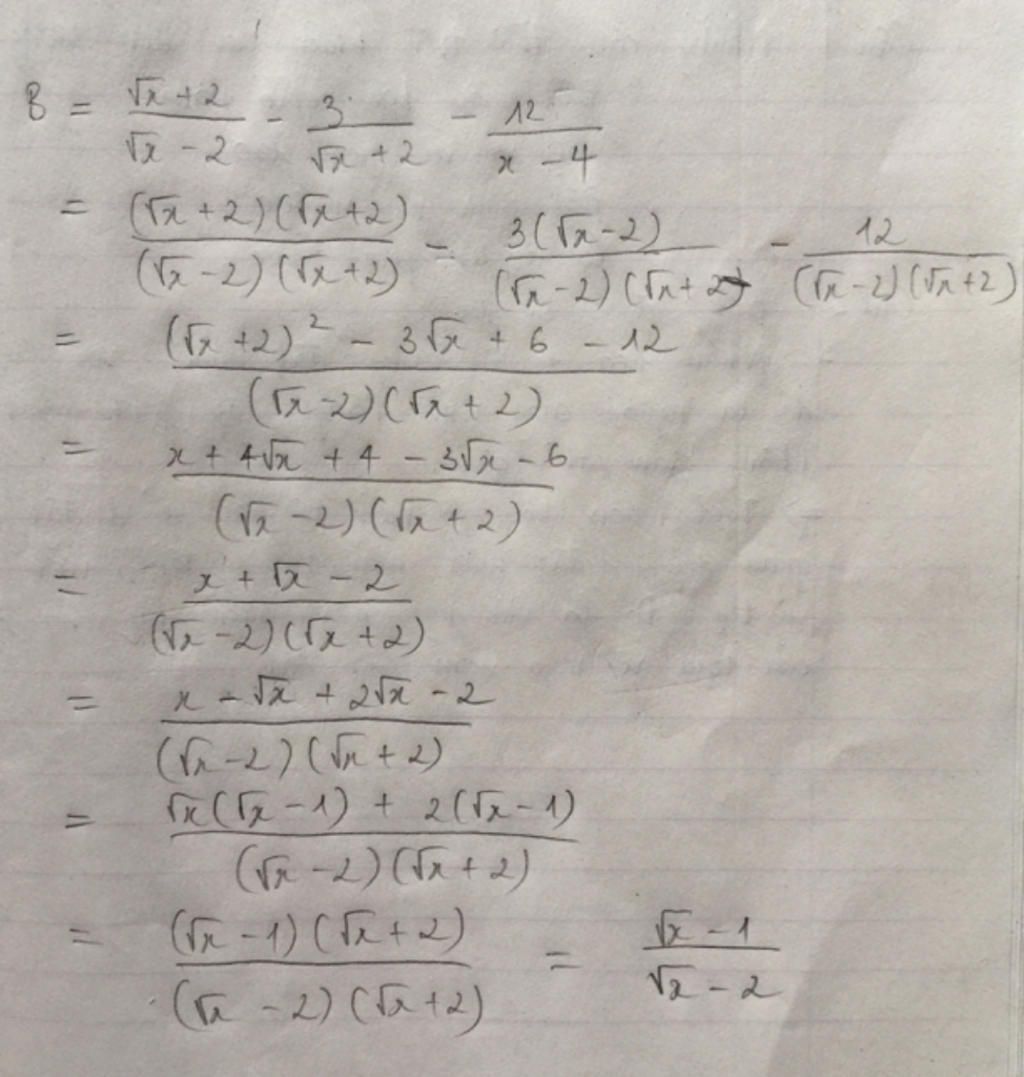 B = (√x + 2)/(√x - 2) - 3/(√x + 2) - 12/(x - 4)
= ((√x + 2)(√x + 2))/((√x - 2)(√x + 2)) - (3(√x - 2))/((√x - 2)(√x + 2)) - 12/((√x - 2)(√x + 2))
= ((√x + 2)² - 3√x + 6 - 12)/((√x - 2)(√x + 2))
= (x + 4√x + 4 - 3√x - 6)/((√x - 2)(√x + 2))
= (x + √x - 2)/((√x - 2)(√x + 2))
= (x - √x + 2√x - 2)/((√x - 2)(√x + 2))
= (√x(√x - 1) + 2(√x - 1))/((√x - 2)(√x + 2))
= ((√x - 1)(√x + 2))/((√x - 2)(√x + 2)) = (√x - 1)/(√x - 2)